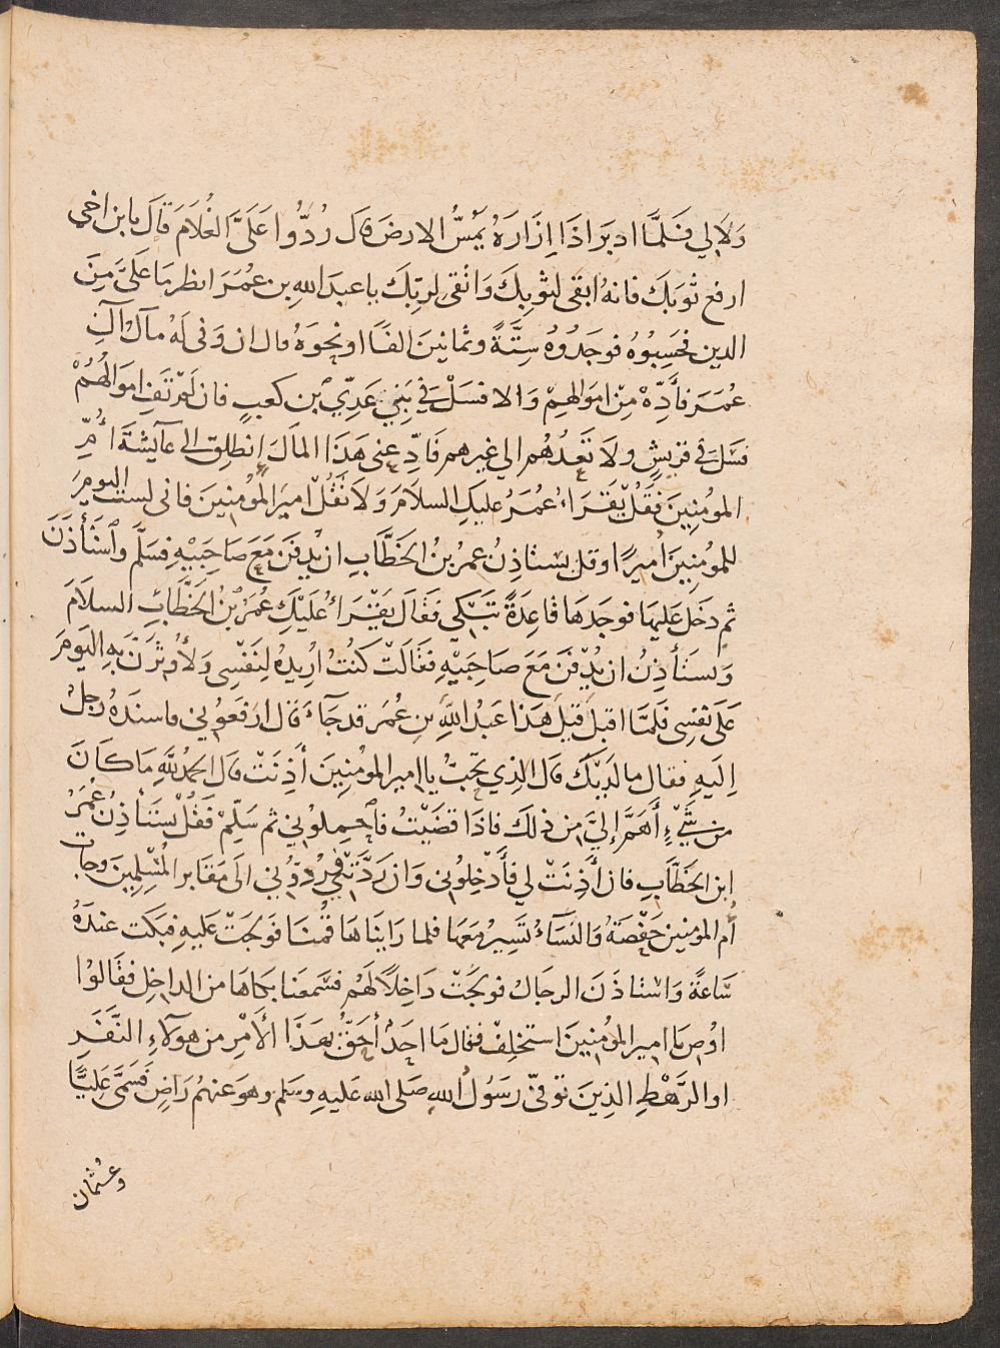 وَلَا لِي فَلَمَّا ادبَرَ اذَا إِزَارَهُ يَمَسُّ الارضَ قال رُدُّوا عَلَيَّ الغُلَامَ قَالَ يابن اخي
ارفع ثَوبَكَ فانهُ ابقى لِثَوبِكَ وَاتقى لِرَبِّكَ يا عبدَ اللهِ بن عُمَرَ انظر مَا عَلَيَّ مِنَ
الدين فحَسِبُوهُ فوجَدُوهُ سِتَّةً وثمانينَ الفًا او نحوَهُ قال ان وَفى لَهُ مآل آلِ
عُمَرَ فأَدِّهْ مِنْ اموَالِهِمْ وَالا فسَلْ فِي بَنِي عَدِيِّ بن كعبٍ فان لَمْ تَفِ اموَالُهُمْ
فسَل في قريشٍ ولَا تَعدُهُم الي غيرهم فَادِّ عني هَذَا المَالَ اِنطَلِق الى عآيشَةَ أُمِّ
المومِنِينَ فقُلْ يَقرَاءُ عُمَرُ عليكِ السلامَ وَلَا تَقُلْ اميرَ المُومِنِينَ فاني لست اليومَ
للمومِنِينَ اَمِيرًا وقل يستاذِنُ عمرُ بنُ الخَطَّابِ ان يُدفَنَ مَعَ صَاحِبَيْهِ فسَلَّمَ وَاستَأذَنَ
ثم دخَل عَليهَا فوجَدهَا قاعِدَةً تَبْكي فَقَالَ يَقْرَاءُ عَلَيْكِ عُمَرُ بْنُ الخَطَّابِ السلَامَ
وَيستَأذِنُ ان يُدْفَنَ مَعَ صَاحِبَيْهِ فقَالَتْ كُنتُ اُرِيدُهُ لِنَفْسِي وَلأوثِرَنَّ بهِ اليَومَ
عَلَى نَفْسِي فَلَمَّا اقبلَ قِيلَ هَذا عَبْدُ اللَّهِ بنِ عُمَرَ قد جَآءَ قال ارفَعُونِي فاسنَدَهُ رجلٌ
إِلَيهِ فقال ما لَدَيْكَ قال الذِي تحِبُّ يا امير المومِنِينَ أَذِنَتْ قال الحمدُ لِلّهِ مَا كانَ
مِن شَيْءٍ أَهَمَّ إِلَيَّ مِن ذلكَ فاذَا قضَيْتُ فاحمِلونِي ثم سَلِّمْ فَقُلْ يستَأذِنُ عُمَرُ
ابن الخَطَّابِ فان أَذِنَتْ لي فأَدْخِلُونِي وَان رَدَّتْنِي رُدُّونِي الَى مَقَابرِ المُسْلِمِينَ وجات
أُم المومنين حَفْصَةُ وَالنسَآءُ تَسِيرُ مَعَهَا فلما رَايناهَا قُمنَا فوَلَجَتْ عَليهِ فبَكت عندَهُ
سَاعَةً وَاستاذَنَ الرجالُ فولجَتْ دَاخِلًا لَهُم فسَمعنَا بكاهَا من الداخِلِ فقَالُوا
اوصِ يَا امير المومِنينَ استخلِفْ فقال مَا احَدٌ أحَقُّ بهَذا الأَمْرِ مِن هولَآءِ النَّفَرِ
اوالرَّهْطِ الذِينَ تُوفّى رَسُولُ اللهِ صَلى الله عَليهِ وسَلم وهوَ عنهُم رَاضٍ فَسَمَّى عَلِيًّا
وعُثمان